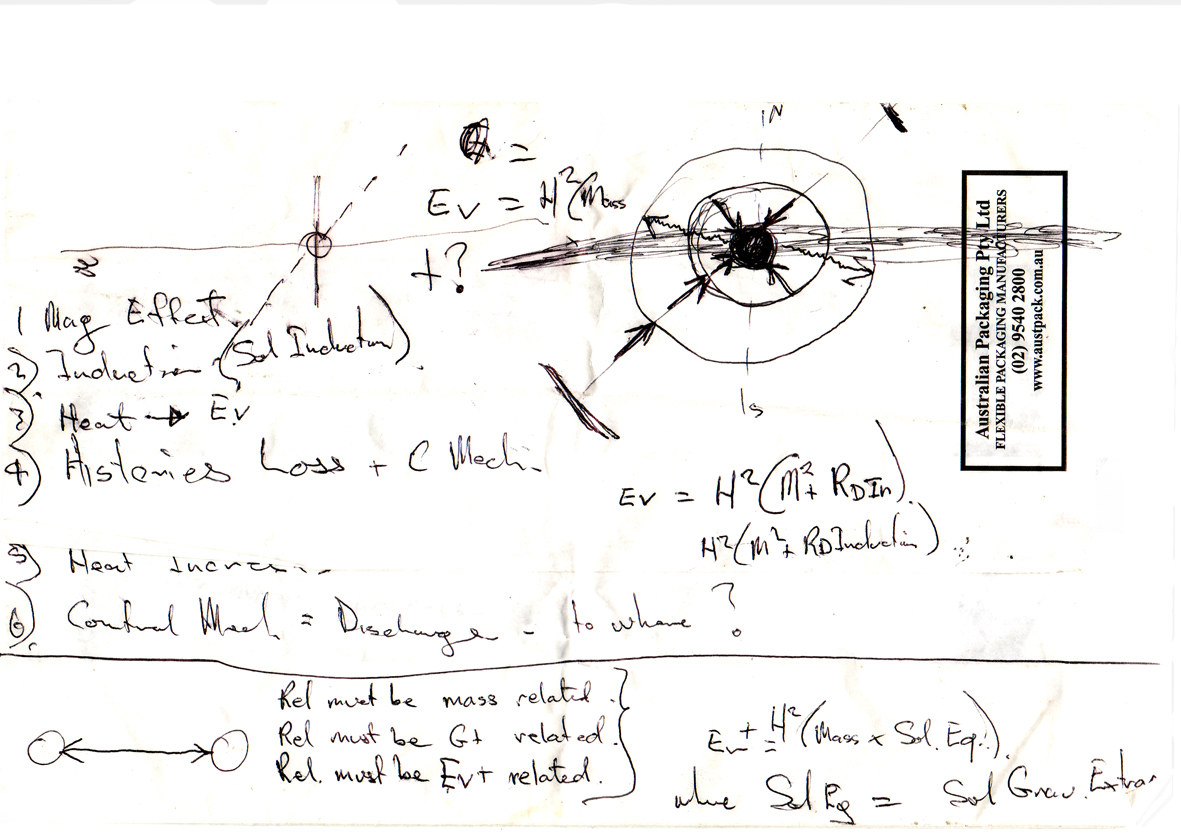 =
Ev = H²(Mass
+?
IN
IS
Australian Packaging Pty Ltd
FLEXIBLE PACKAGING MANUFACTURERS
(02) 9540 2800
www.austpack.com.au
1 Mag Effect.
2) Induction (Sol Induction).
3) Heat → Ev
4) Histeries Loss + C Mech.
5) Heat Increa...
6) Control Mech. = Discharge - to where?
Ev = H²(M²+ RDIn).
H²(M²+ RDInduction)
Rel must be mass related.
Rel must be G+ related.
Rel. must be Ev+ related.
Ev ± H²(Mass x Sol. Eq.).
where Sol Eq = Sol Grav. Extra